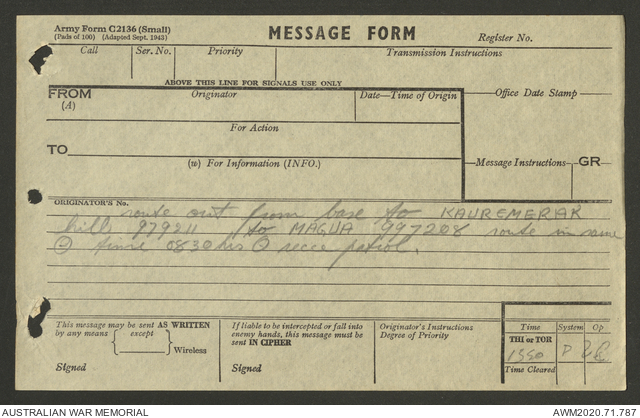 Army Form C2136 (Small)
(Pads of 100) (Adapted Sept. 1943)
MESSAGE FORM
Register No.
Call
Ser. No.
Priority
Transmission Instructions
ABOVE THIS LINE FOR SIGNALS USE ONLY
FROM
(A)
Originator
Date—Time of Origin
Office Date Stamp
For Action
TO
(W) For Information (INFO.)
Message Instructions
GR
ORIGINATOR'S No.
route out from base to KAUREMERAK
hills 979211 to MAGUA 997208 route in same
time 0830 hrs recce patrol.
This message may be sent AS WRITTEN
by any means except
Wireless
Signed
If liable to be intercepted or fall into
enemy hands, this message must be
sent IN CIPHER
Signed
Originator's Instructions
Degree of Priority
Time
System
Op.
THI or TOR
1350 D
Time Cleared
AUSTRALIAN WAR MEMORIAL
AWM2020.71.787